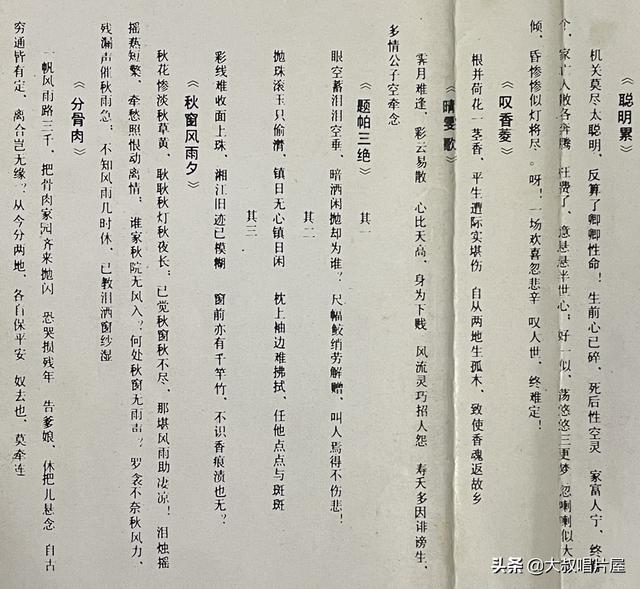 《聪明累》
机关算尽太聪明、反算了卿卿性命！生前心已碎、死后性空灵 家富人宁、终
个、家亡人散各奔腾 枉费了、意悬悬半世心；好一似、荡悠悠三更梦 忽喇喇似大
倾、昏惨惨似灯将尽。呀！一场欢喜忽悲辛 叹人世、终难定！
《叹香菱》
根并荷花一茎香、平生遭际实堪伤 自从两地生孤木、致使香魂返故乡
《晴雯歌》
霁月难逢、彩云易散 心比天高、身为下贱 风流灵巧招人怨 寿夭多因诽谤生、
多情公子空牵念
《题帕三绝》
其一
眼空蓄泪泪空垂、暗洒闲抛却为谁？尺幅鲛绡劳解赠、叫人焉得不伤悲！
其二
抛珠滚玉只偷潸、镇日无心镇日闲 枕上袖边难拂拭、任他点点与斑斑
其三
彩线难收面上珠、湘江旧迹已模糊 窗前亦有千竿竹、不识香痕渍也无？
《秋窗风雨夕》
秋花惨淡秋草黄、耿耿秋灯秋夜长；已觉秋窗秋不尽、那堪风雨助凄凉！泪烛摇
摇热短檠、牵愁照恨动离情；谁家秋院无风入？何处秋窗无雨声？罗衾不奈秋风力、
残漏声催秋雨急；不知风雨几时休、已教泪洒窗纱湿
《分骨肉》
一帆风雨路三千、把骨肉家园齐来抛闪 恐哭损残年 告爹娘、休把儿悬念 自古
穷通皆有定、离合岂无缘？从今分两地、各自保平安 奴去也、莫牵连
头条@大叔唱片屋